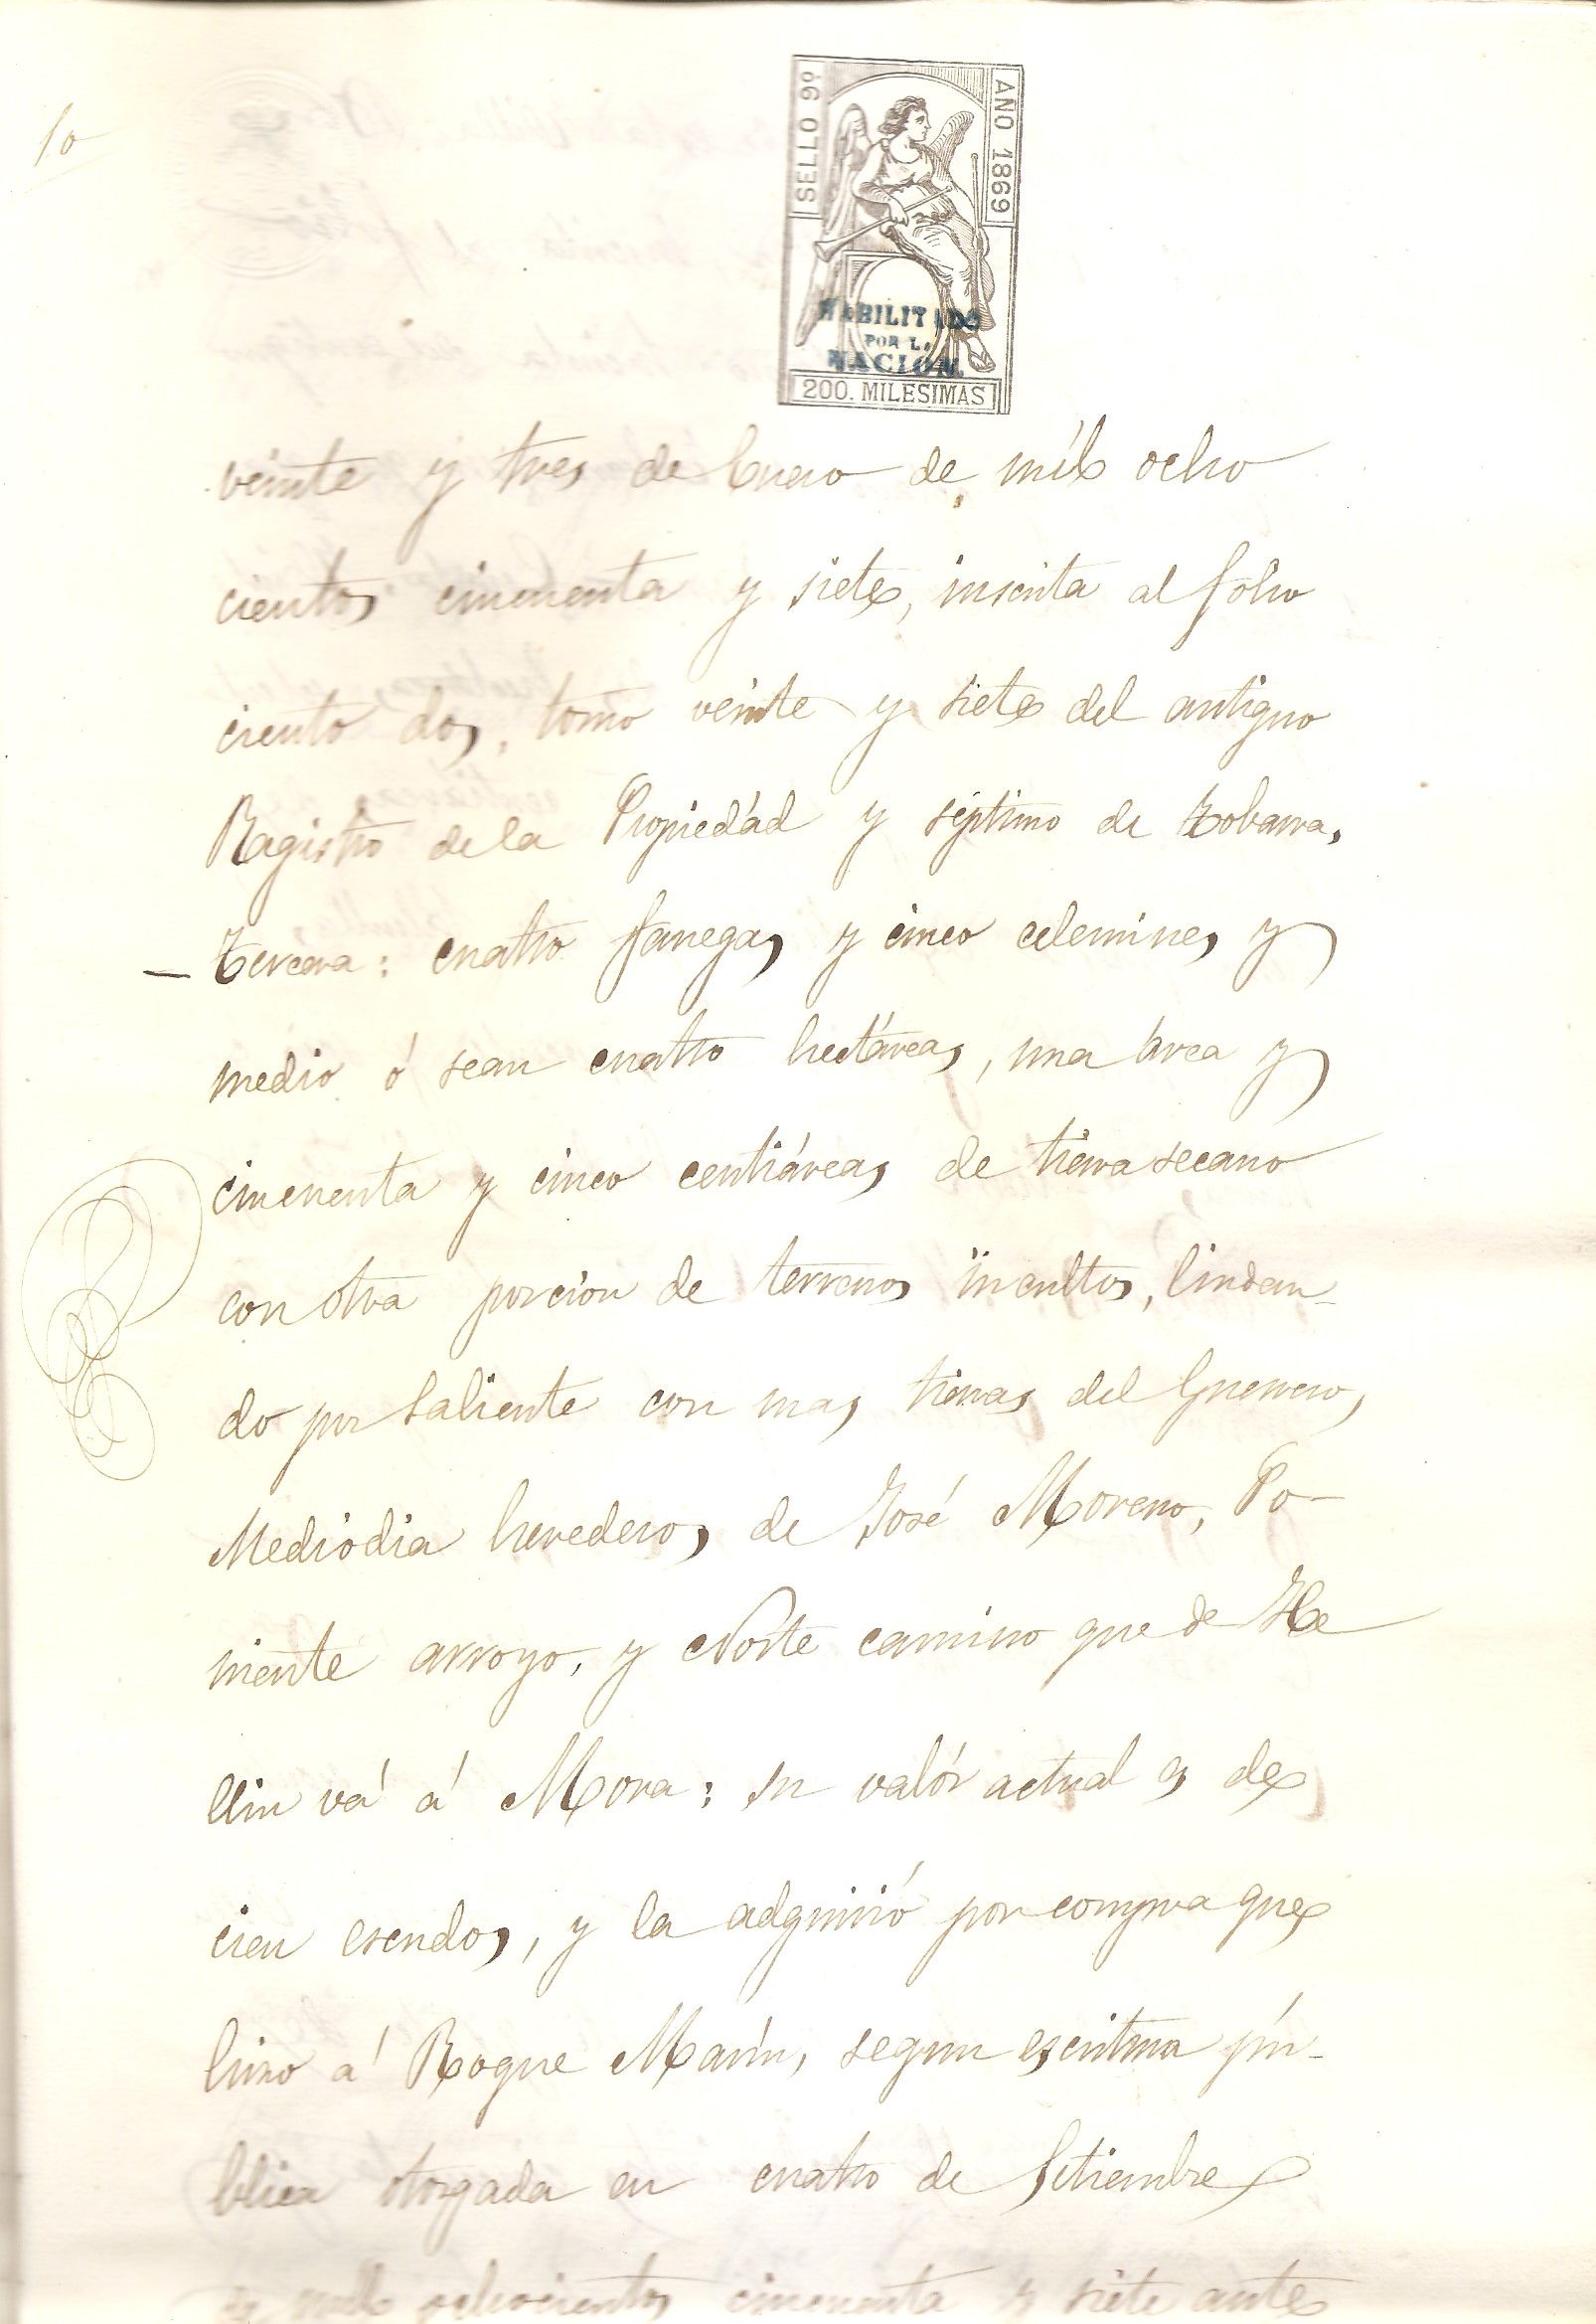 10
SELLO 9º
AÑO 1869
HABILITADO
POR LA
NACION.
200. MILESIMAS
veinte y tres de Enero de mil ocho
cientos cincuenta y siete, inscrita al folio
ciento dos, tomo veinte y siete del antiguo
Registro de la Propiedád y séptimo de Tobarra.
— Tercera: cuatro fanegas y cinco celemines y
medio ó sean cuatro hectáreas, una área y
cincuenta y cinco centiáreas de tierra secano
con otra porcion de terrenos incultos, lindan-
do por Saliente con mas tierras del Guerrero,
Mediodia herederos de José Moreno, Po-
niente arroyo, y Norte camino que de He
llin vá á Mora: su valór actual es de
cien escudos, y la adquirió por compra que
hizo á Roque Marín, segun escritura pú-
blica otorgada en cuatro de Setiembre
de mil ochocientos cincuenta y siete ante